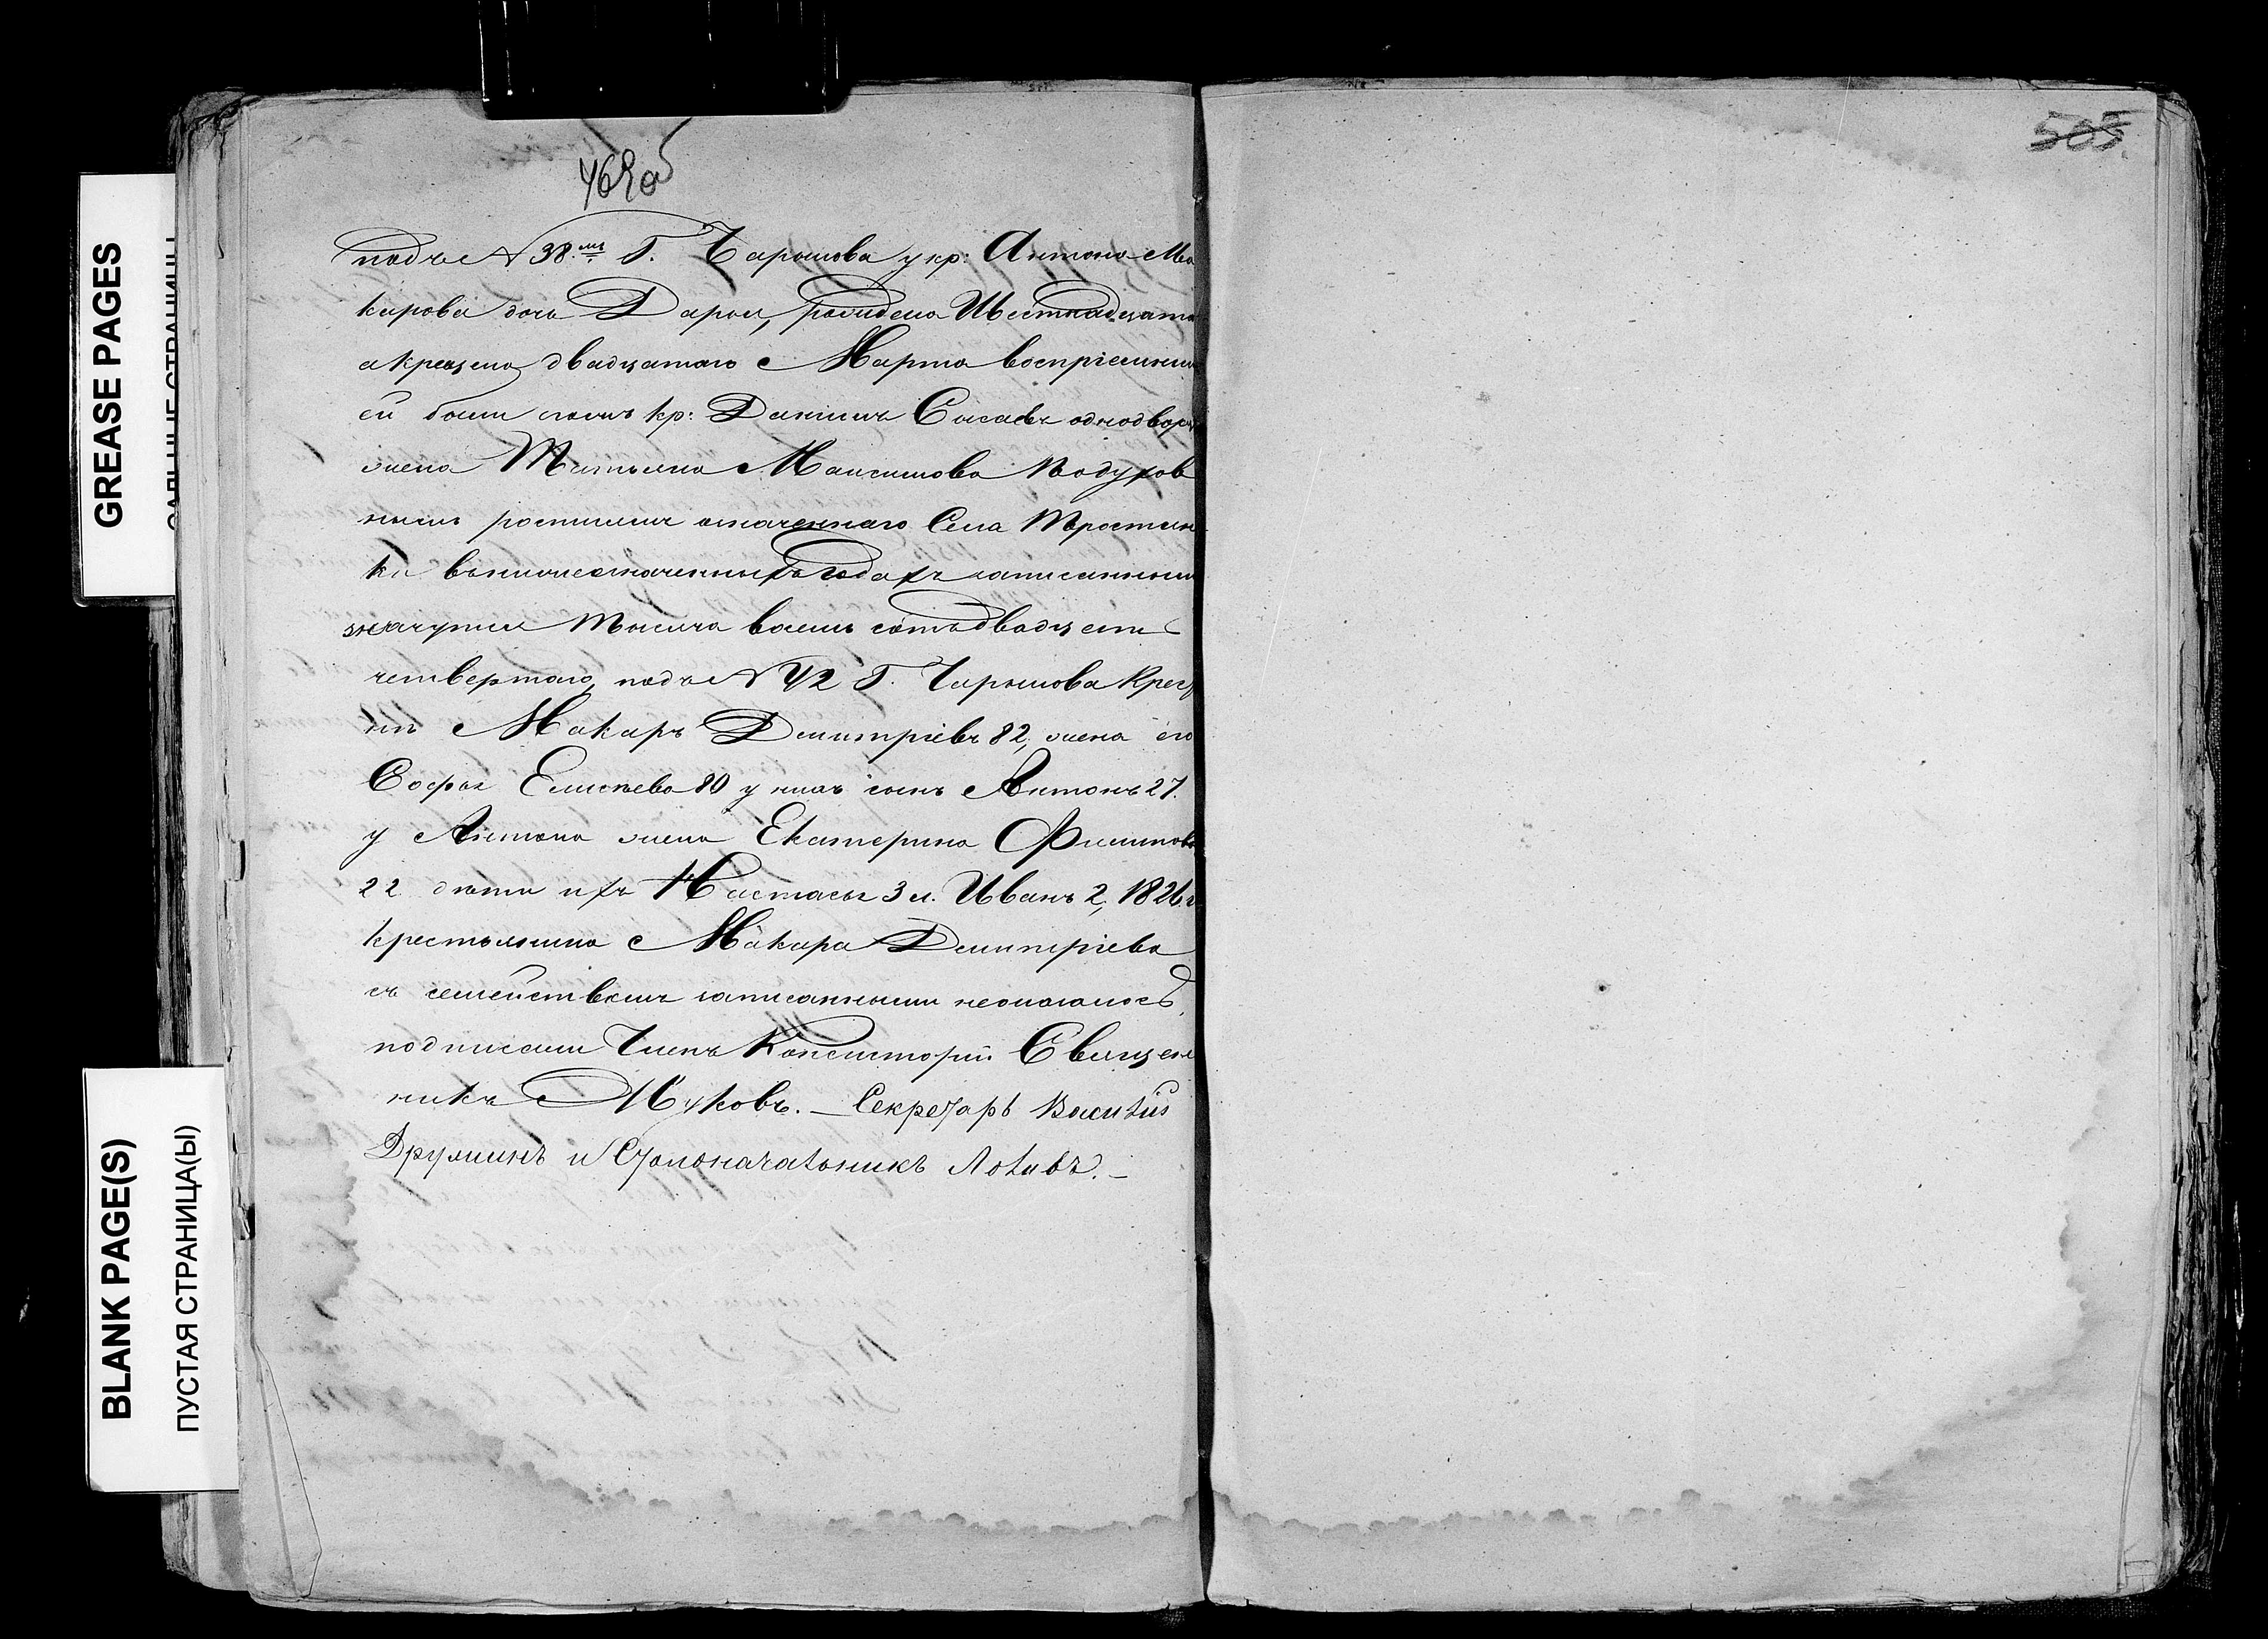 GREASE PAGES
BLANK PAGE(S)
ПУСТАЯ СТРАНИЦА(Ы)
469 об
505.
подъ N 38.мъ Г. Чарыкова у кр: Антона Ма
карова дочь Дарья, рождена Шестнадцата
а крещена двадцатаго Марта воспріемники
ей были кр: Даніилъ однодвор
жена Татьяна Максимова по духов
нымъ росписямъ означеннаго Села Тростян
ки вышеозначенныхъ годахъ записанными
значутся Тысяча восемь сотъ двадцать
четвертаго подъ N 42 Г. Чарыкова Крес
нъ Макаръ Дмитріевъ 82, жена его
Софья Елисеева 80 у нихъ сынъ Антонъ 27.
у Антона жена Екатерина Филипова
22 дети ихъ Настасья 3 л. Иванъ 2, 1826
крестьянина Макара Дмитріева
съ семействомъ записанными неоказалось,
подписали Членъ Консисторіи Священ
никъ Жуковъ. — Секретарь Василій
Дружининъ и Столоначальникъ